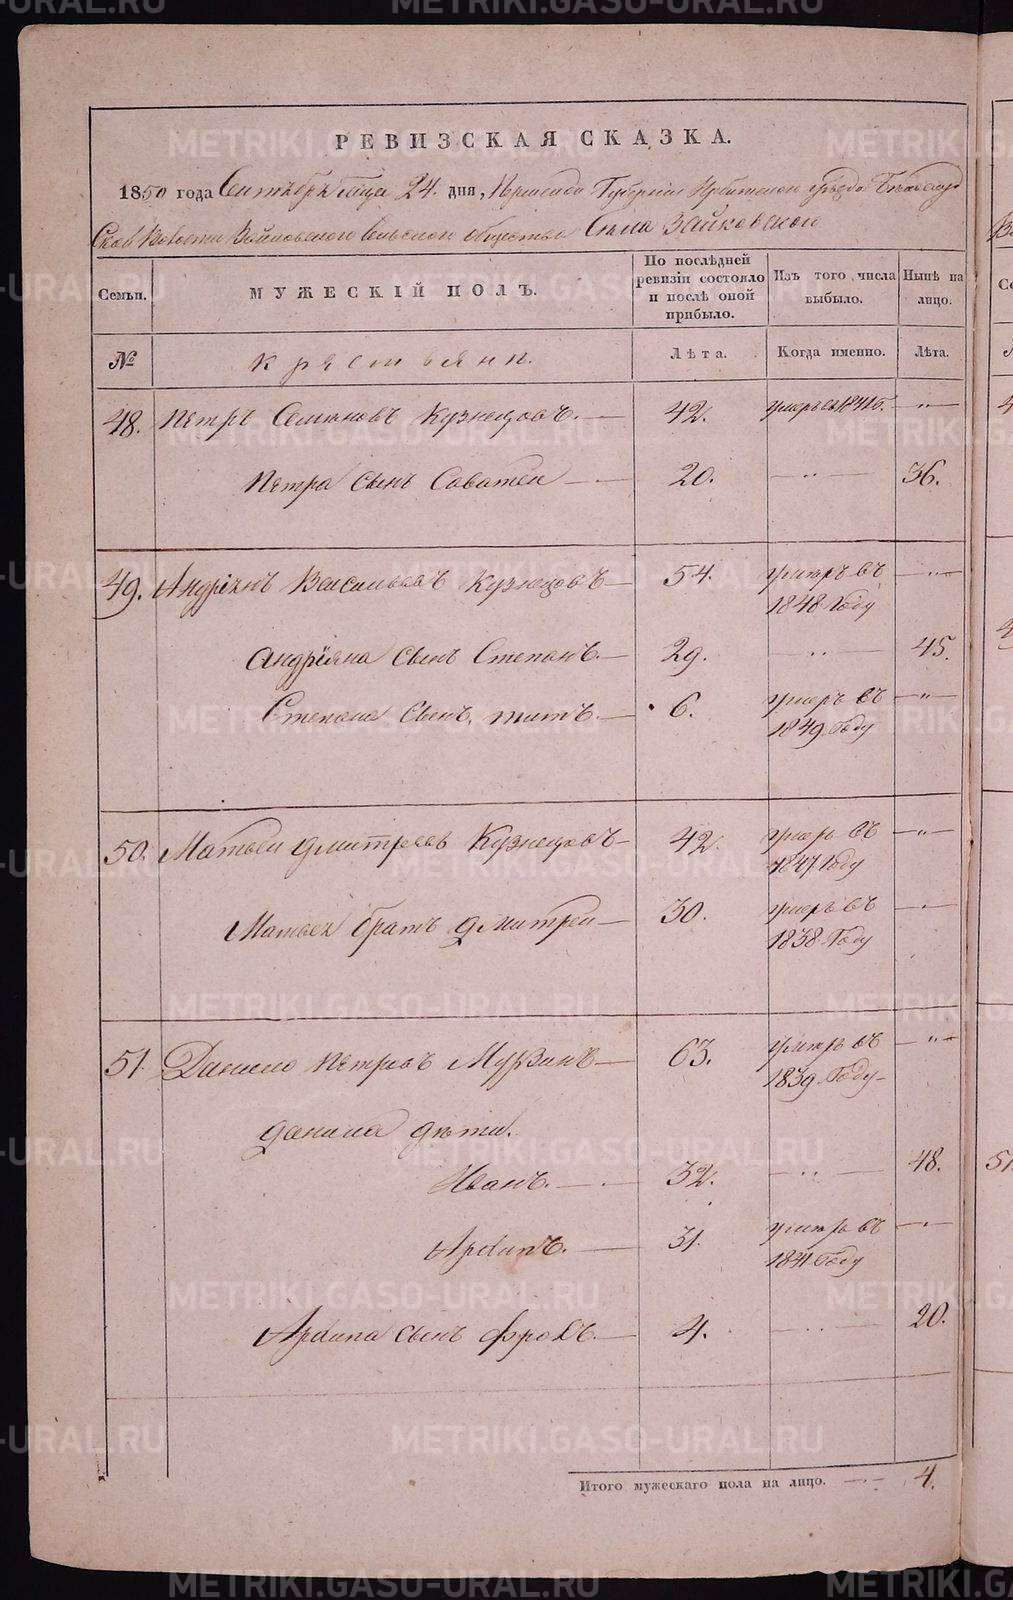 РЕВИЗСКАЯ СКАЗКА.
1850 года Сентября месяца 24. дня, Пермской Губернии Ирбитского уезда
Волости Зайковского сельского общества Села Зайковской
Семьи. МУЖЕСКІЙ ПОЛЪ. По послѣдней ревизіи состояло и послѣ оной прибыло. Изъ того числа выбыло. Нынѣ на лицо.
№ крестьяни. Лѣта. Когда именно. Лѣта.
48. Петръ Семеновъ Кузнецовъ. 42. умеръ въ 1845. — „ —
Петра сынъ Саватей 20. — „ — 36.
49. Андріянъ Васильевъ Кузнецовъ 54. умеръ въ — „ —
1848 Году
Андріяна сынъ Степанъ. 29. — „ — 45.
Степана сынъ, титъ. 6. умеръ въ — „ —
1849. Году
50. Матвей Дмитревъ Кузнецовъ 42. умеръ въ — „ —
1847 Году
Матвея братъ Дмитрей 30. умеръ въ — „ —
1838 Году
51. Данило Петровъ Мурзинъ 63. умеръ въ — „ —
1839. Году
Данила дѣти.
Иванъ. 32. — „ — 48.
Архипъ. 31. умеръ въ — „ —
1841 Году
Архипа сынъ Фролъ. 4. — „ — 20.
Итого мужескаго пола на лицо. 4.
METRIKI.GASO-URAL.RU